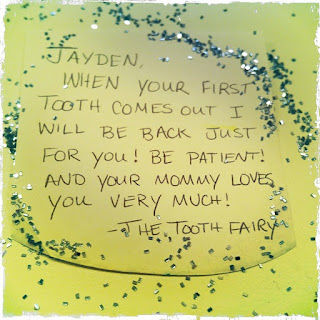 JAYDEN,
WHEN YOUR FIRST
TOOTH COMES OUT I
WILL BE BACK JUST
FOR YOU! BE PATIENT!
AND YOUR MOMMY LOVES
YOU VERY MUCH!
-THE TOOTH FAIRY